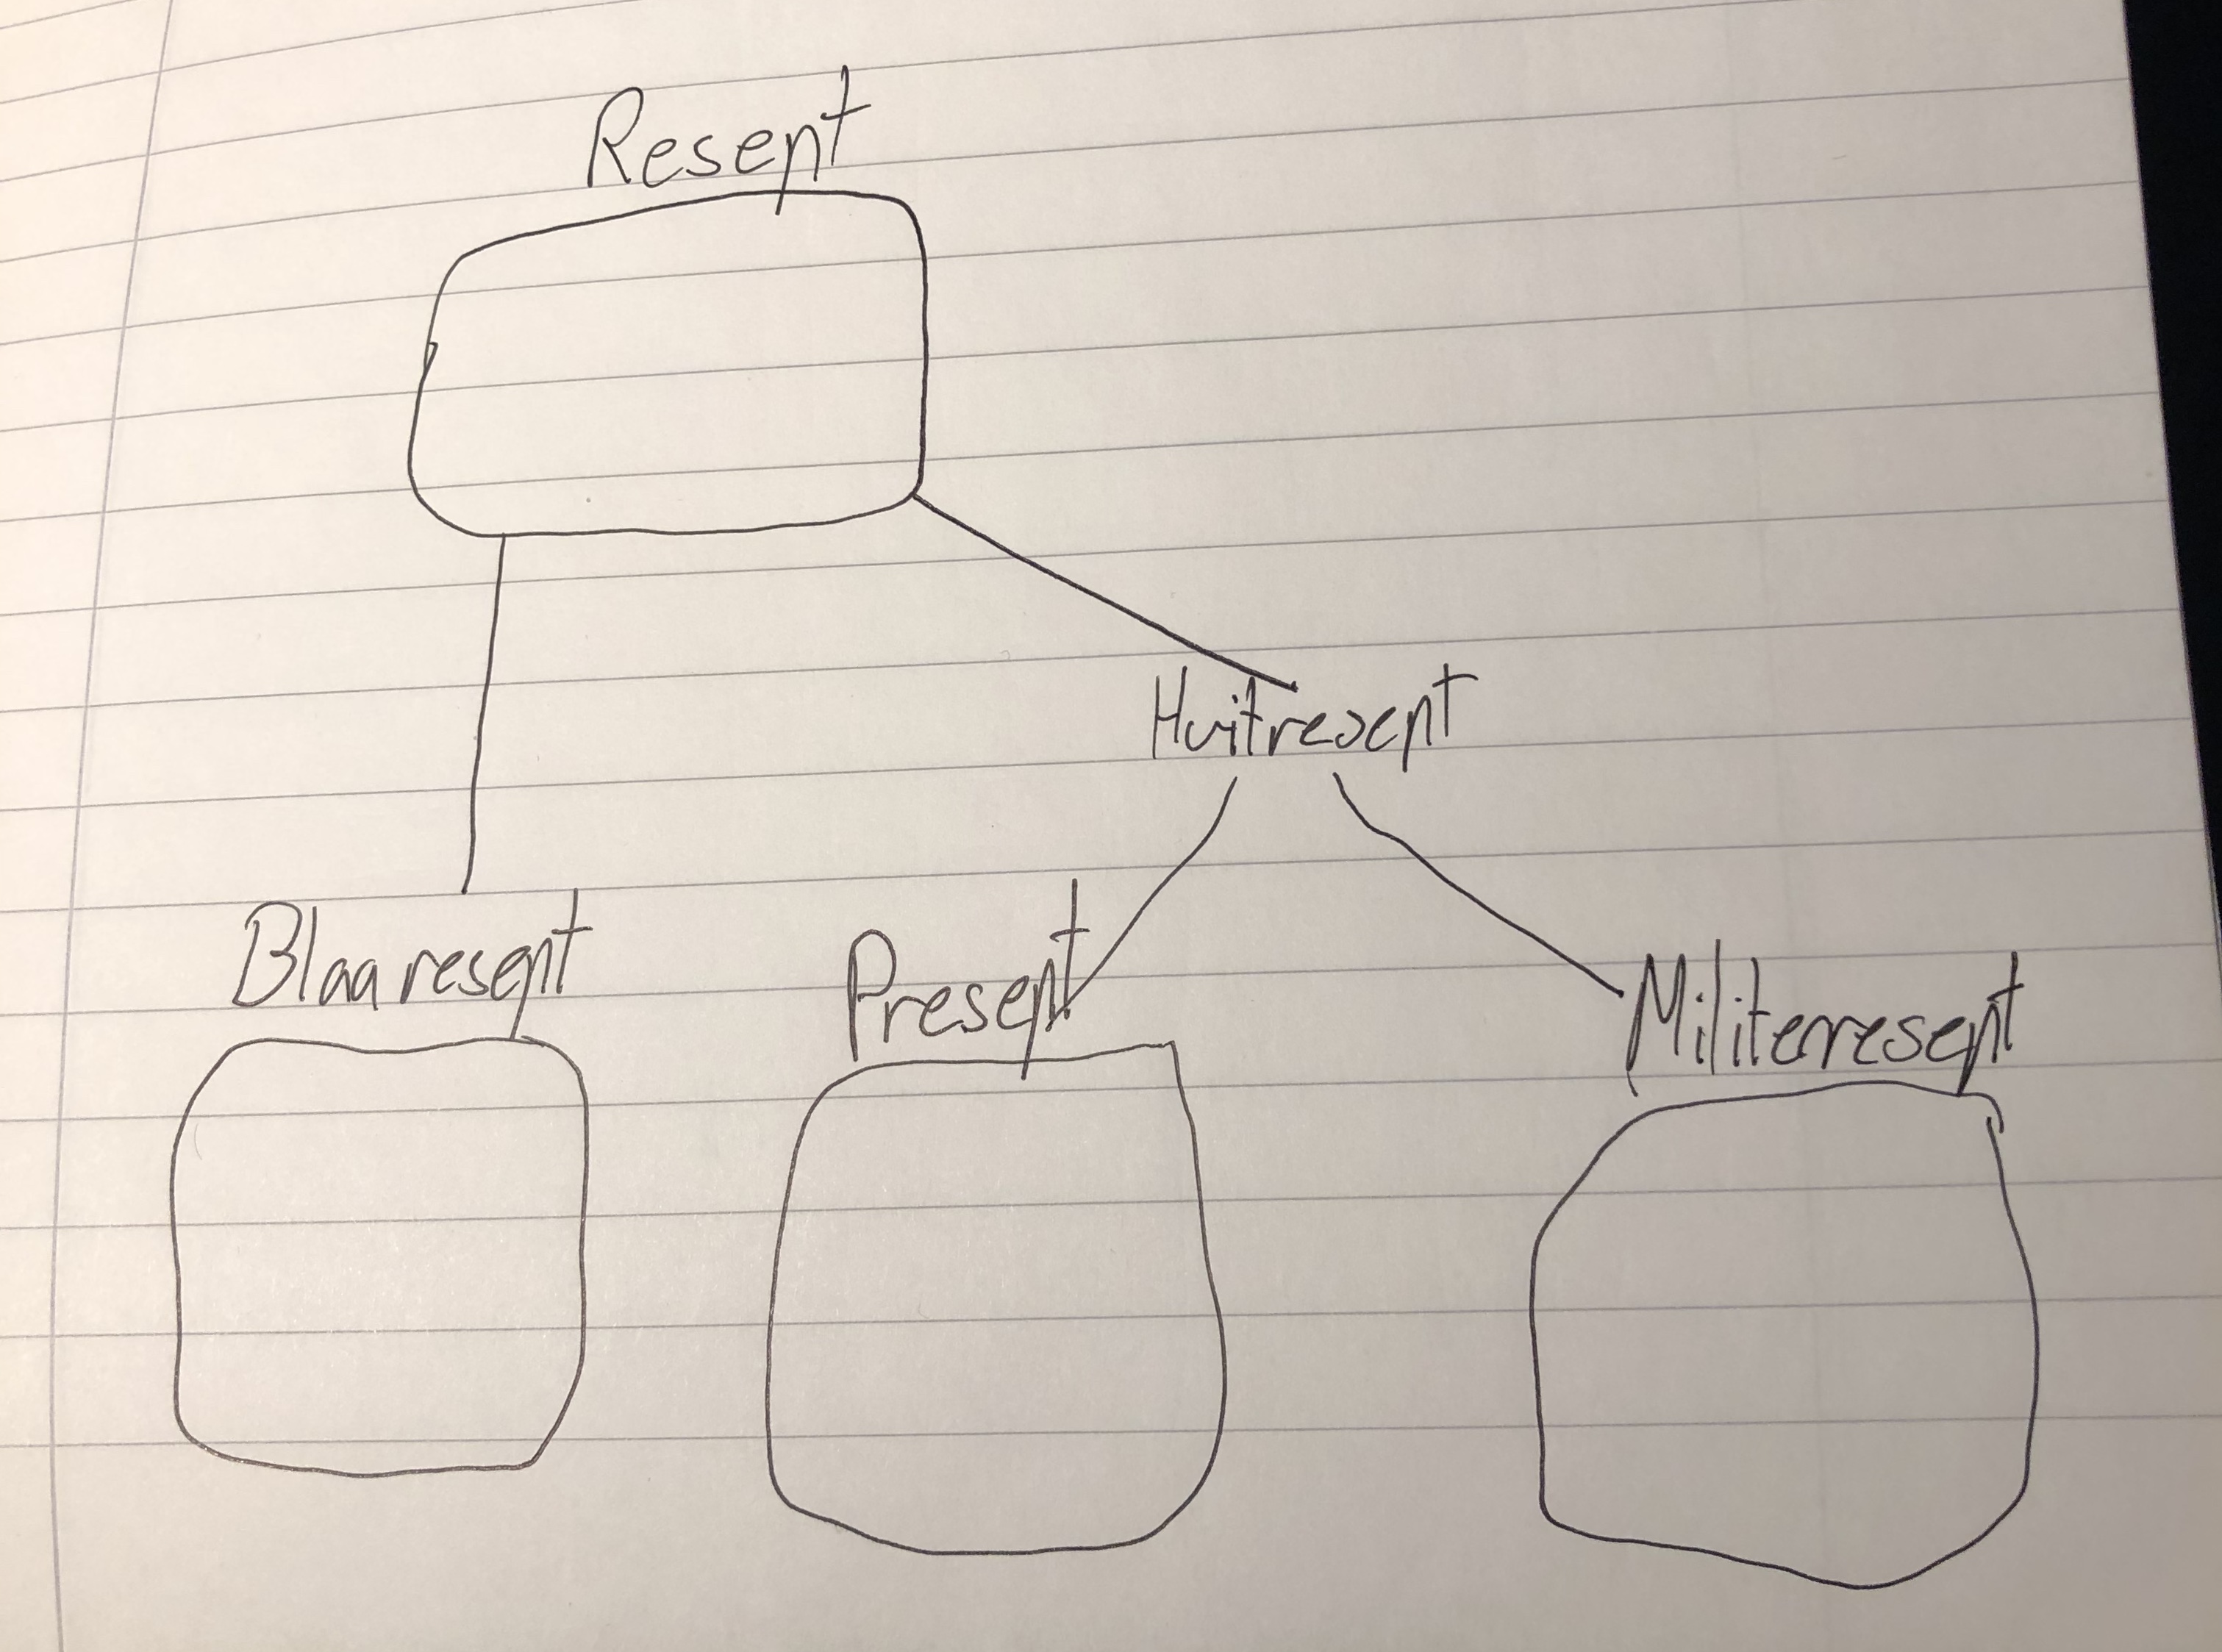 Resept
Hvitresept
Blaaresept
Presept
Militerresept